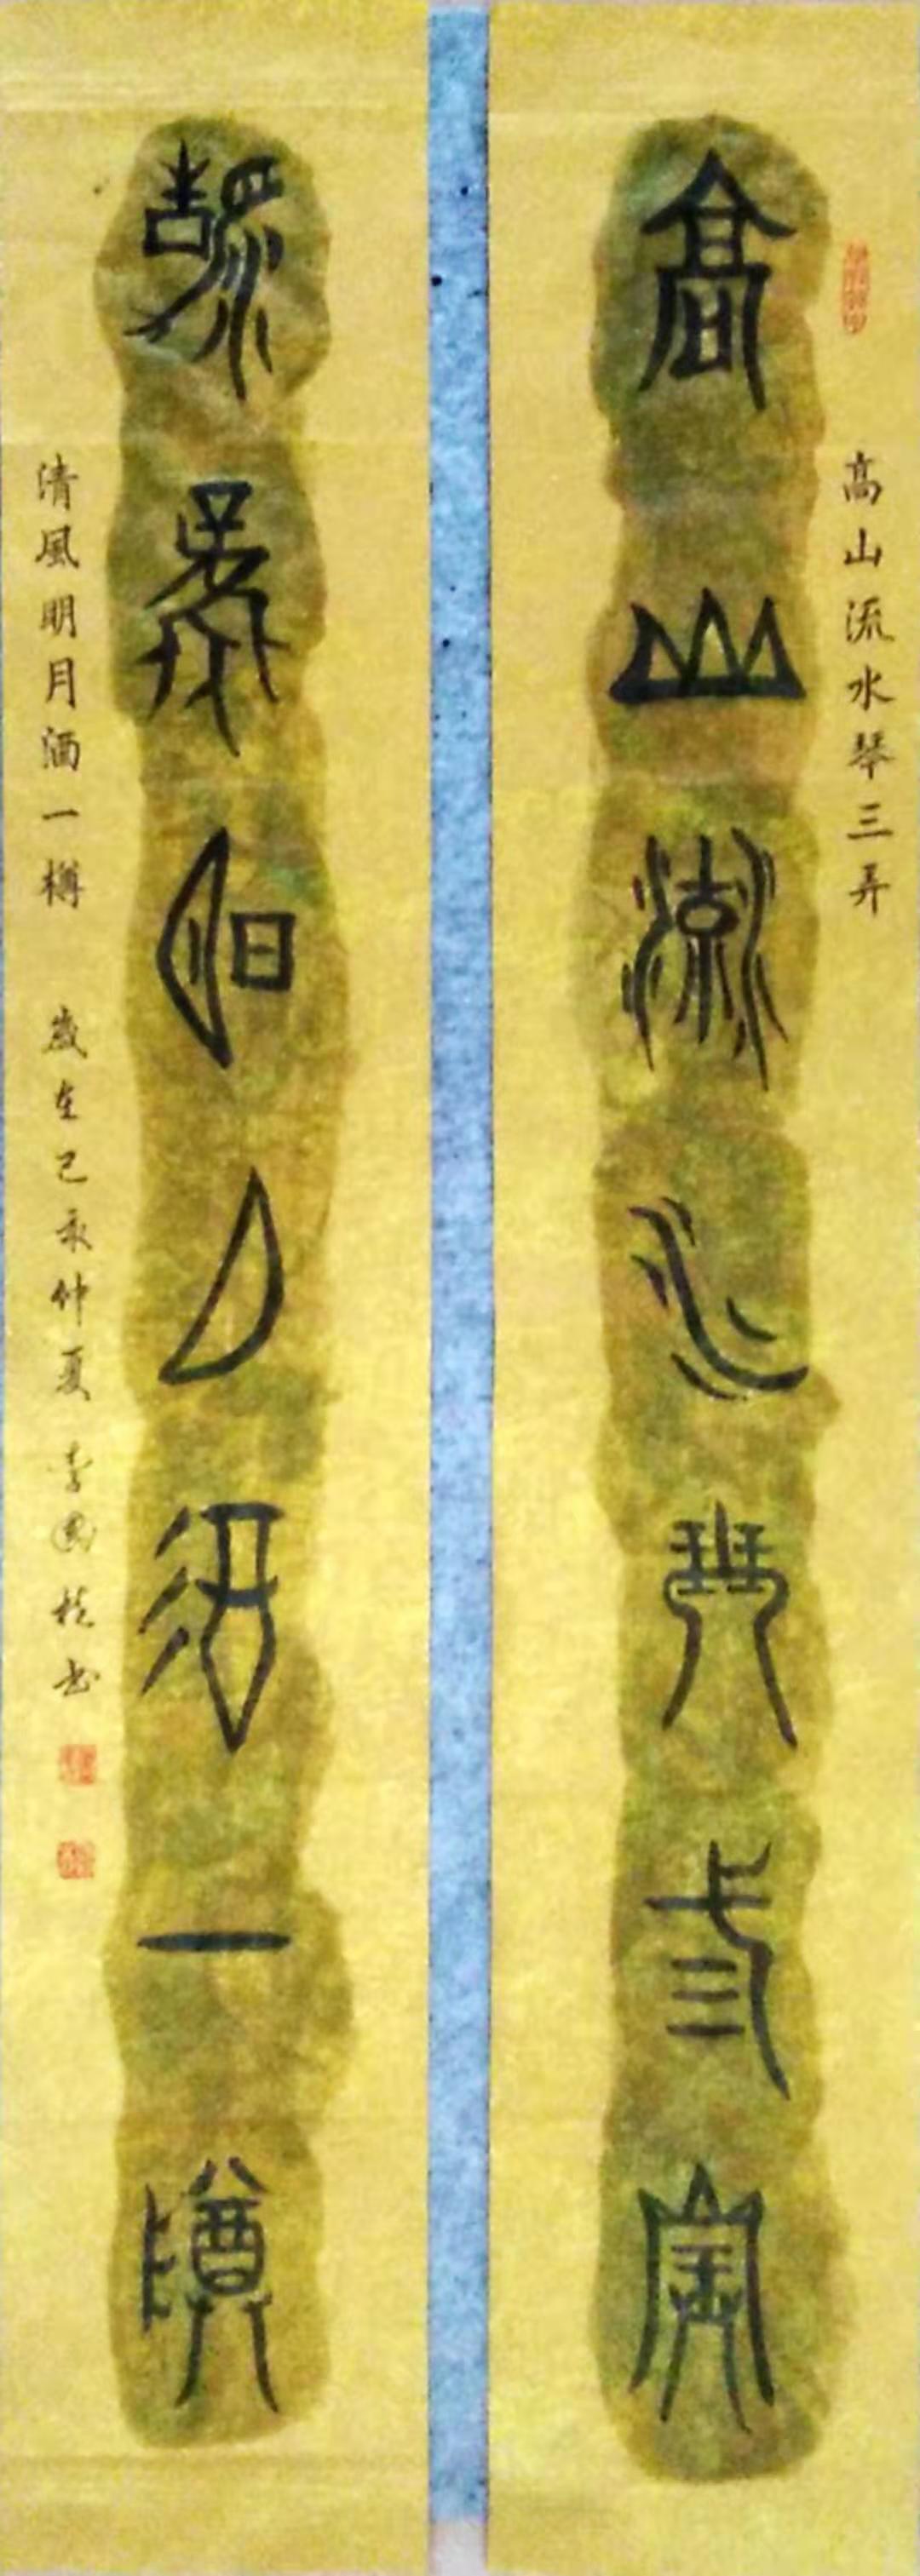 高山流水琴三弄
高山流水琴三弄
清風明月酒一樽
清風明月酒一樽 歲在己亥仲夏 李國柱书